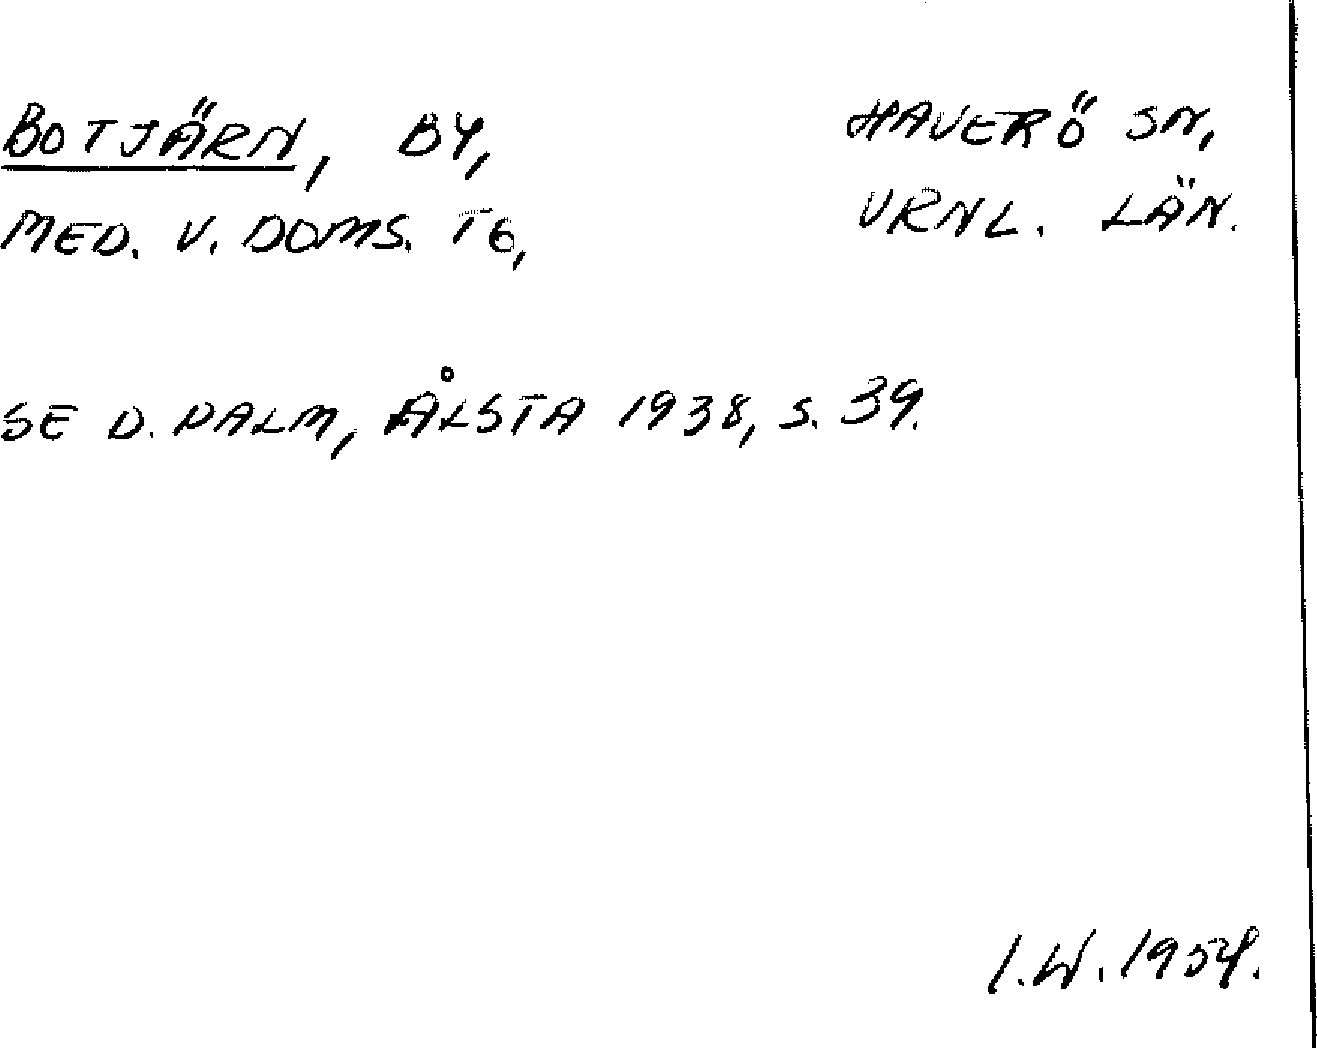 BOTJÄRN, BY, HAVERÖ SN,
MED. V. DOMS. TG, VRNL. LÄN.
SE D. PALM, ÅLSTA 1938, S. 39.
I.W. 1954.